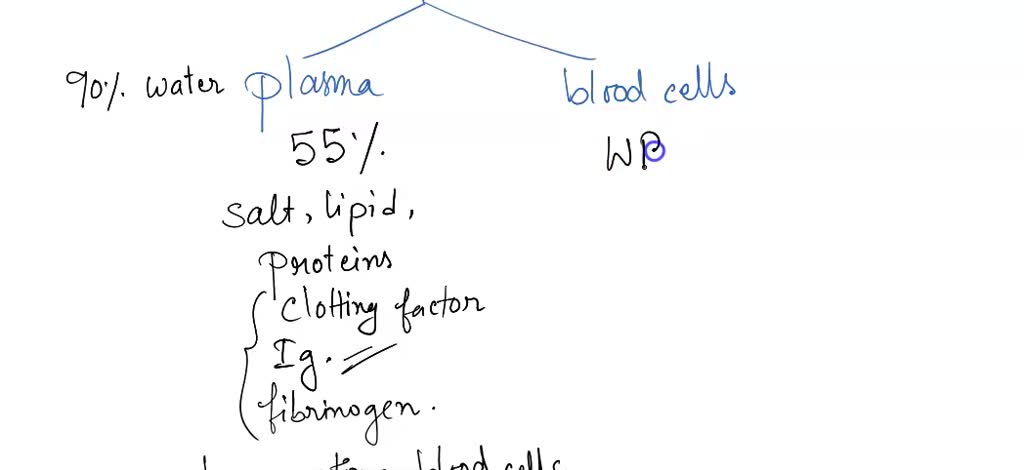 90% water plasma blood cells
55% WB
salt, lipid,
proteins
clotting factor
Ig.
fibrinogen.
blood cells